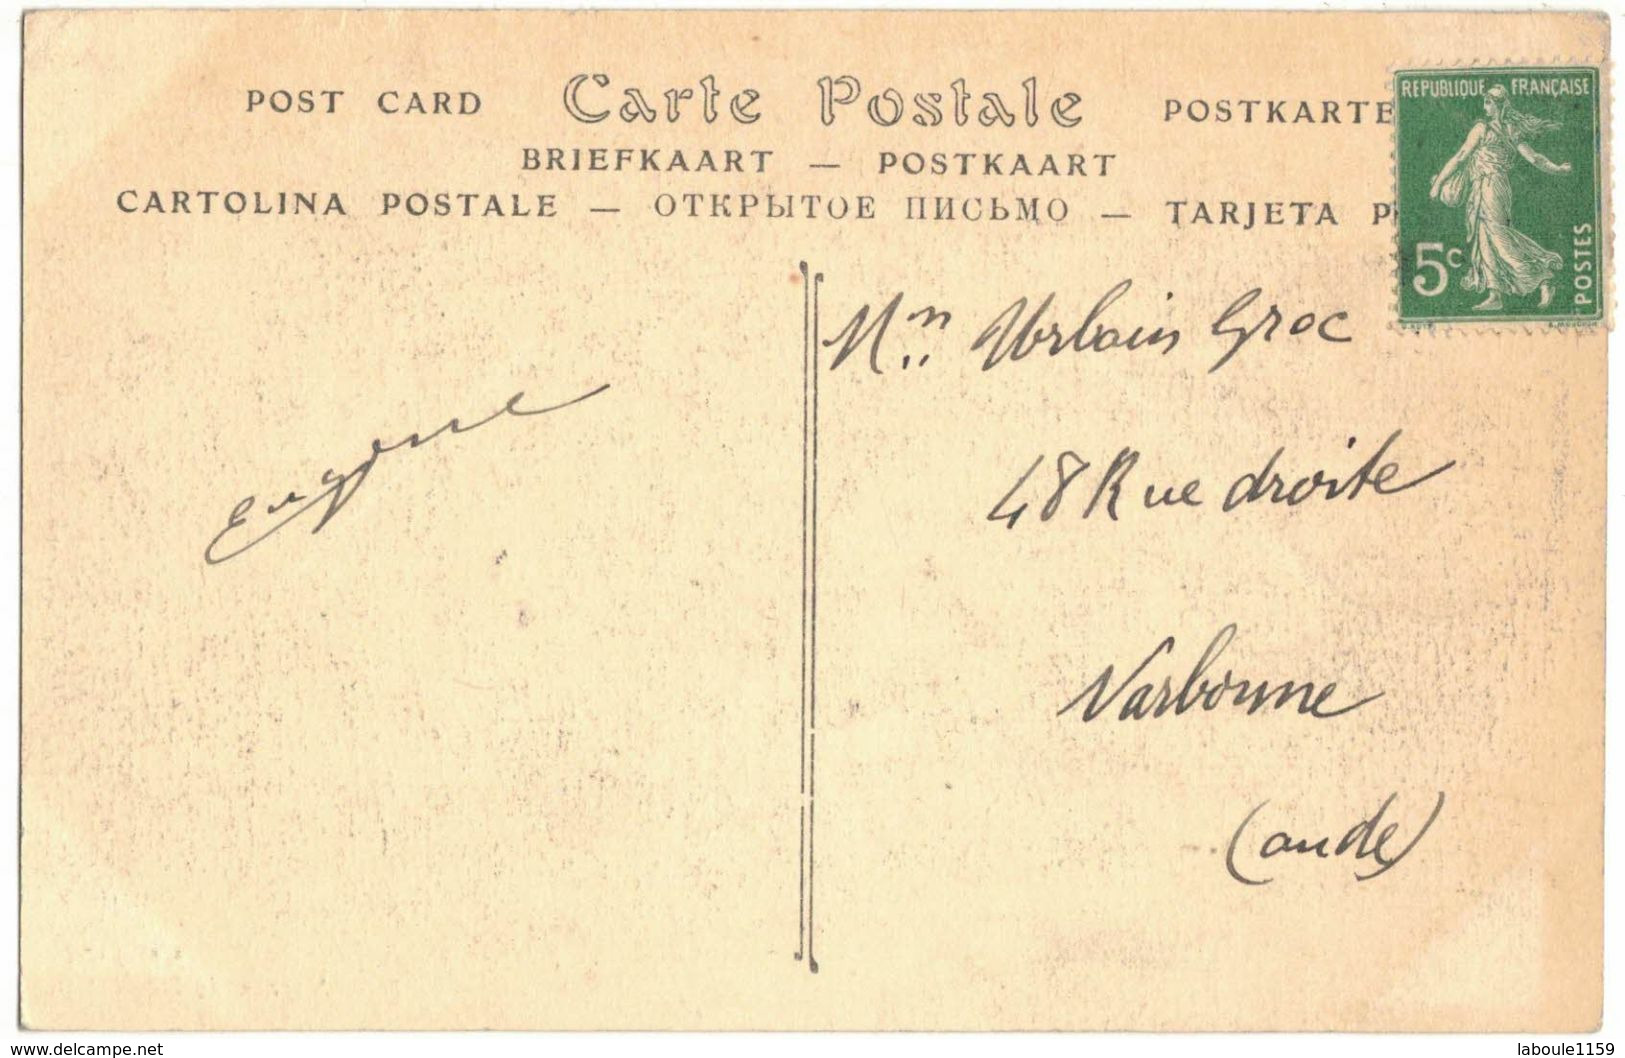 POST CARD Carte Postale POSTKARTE
BRIEFKAART — POSTKAART
CARTOLINA POSTALE — ОТКРЫТОЕ ПИСЬМО — TARJETA P
REPUBLIQUE FRANÇAISE
5c
POSTES
Urbain Groc
48 Rue droite
Narbonne
(aude)
Eugène
www.delcampe.net
laboule1159